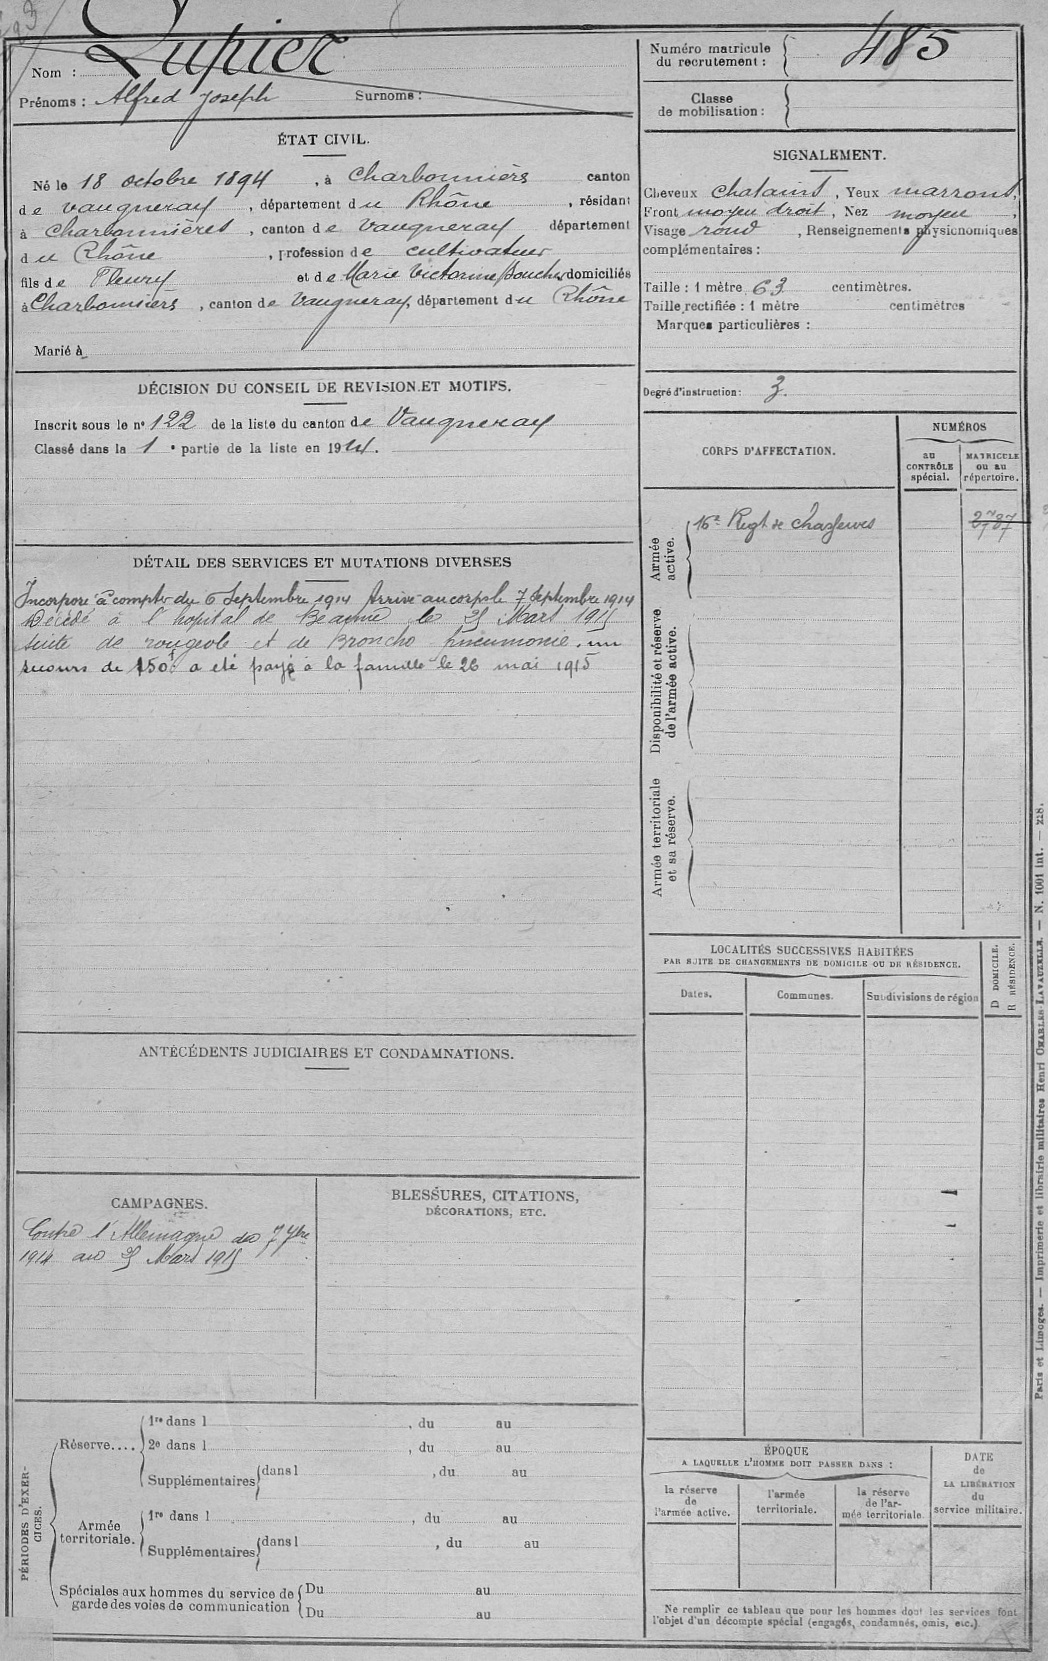 Lupier
Nom :
Prénoms : Alfred Joseph Surnoms :
ÉTAT CIVIL.
Né le 18 octobre 1894 , à Charbonnièrs canton
de Vaugneray , département du Rhône , résidant
à Charbonnières , canton de Vaugneray département
du Rhône , profession de cultivateur
fils de Fleury et de Marie Victorine Bouchet domiciliés
à Charbonniers , canton de Vaugneray, département du Rhône
Marié à
DÉCISION DU CONSEIL DE REVISION ET MOTIFS.
Inscrit sous le nº 122 de la liste du canton de Vaugneray
Classé dans la 1 e partie de la liste en 1914.
DÉTAIL DES SERVICES ET MUTATIONS DIVERSES
Incorporé à compter du 6 Septembre 1914 Arrivé au corps le 7 Septembre 1914
Décédé à l'hopital de Beaune le 25 Mars 1915
suite de rougeole et de Broncho pneumonie. un
secours de 150f a été payé à la famille le 26 mai 1915
ANTÉCÉDENTS JUDICIAIRES ET CONDAMNATIONS.
CAMPAGNES.
Contre l'Allemagne du 7 7bre
1914 au 25 Mars 1915
BLESSURES, CITATIONS,
DÉCORATIONS, ETC.
PÉRIODES D'EXER-
CICES.
Réserve....
1re dans l , du au
2e dans l , du au
Supplémentaires dans l , du au
Armée
territoriale.
1re dans l , du au
Supplémentaires dans l , du au
Spéciales aux hommes du service de
garde des voies de communication
Du au
Du au
Numéro matricule
du recrutement : 485
Classe
de mobilisation :
SIGNALEMENT.
Cheveux chatains , Yeux marrons,
Front moyen droit , Nez moyen ,
Visage rond , Renseignements physionomiques
complémentaires :
Taille : 1 mètre 63 centimètres.
Taille rectifiée : 1 mètre centimètres
Marques particulières :
Degré d'instruction : 3.
CORPS D'AFFECTATION.
NUMÉROS
au
CONTRÔLE
spécial.
MATRICULE
ou au
répertoire.
Armée
active.
16e Regt de Chasseurs
Disponibilité et réserve
de l'armée active.
Armée territoriale
et sa réserve.
LOCALITÉS SUCCESSIVES HABITÉES
PAR SUITE DE CHANGEMENTS DE DOMICILE OU DE RÉSIDENCE.
Dates.
Communes.
Subdivisions de région
D DOMICILE.
R RÉSIDENCE.
ÉPOQUE
A LAQUELLE L'HOMME DOIT PASSER DANS :
la réserve
de
l'armée active.
l'armée
territoriale.
la réserve
de l'ar-
mée territoriale
DATE
de
LA LIBÉRATION
du
service militaire.
Ne remplir ce tableau que pour les hommes dont les services font
l'objet d'un décompte spécial (engagés, condamnés, omis, etc.)
Paris et Limoges. — Imprimerie et librairie militaires Henri CHARLES-LAVAUZELLE. — N. 1001 int. — 228.